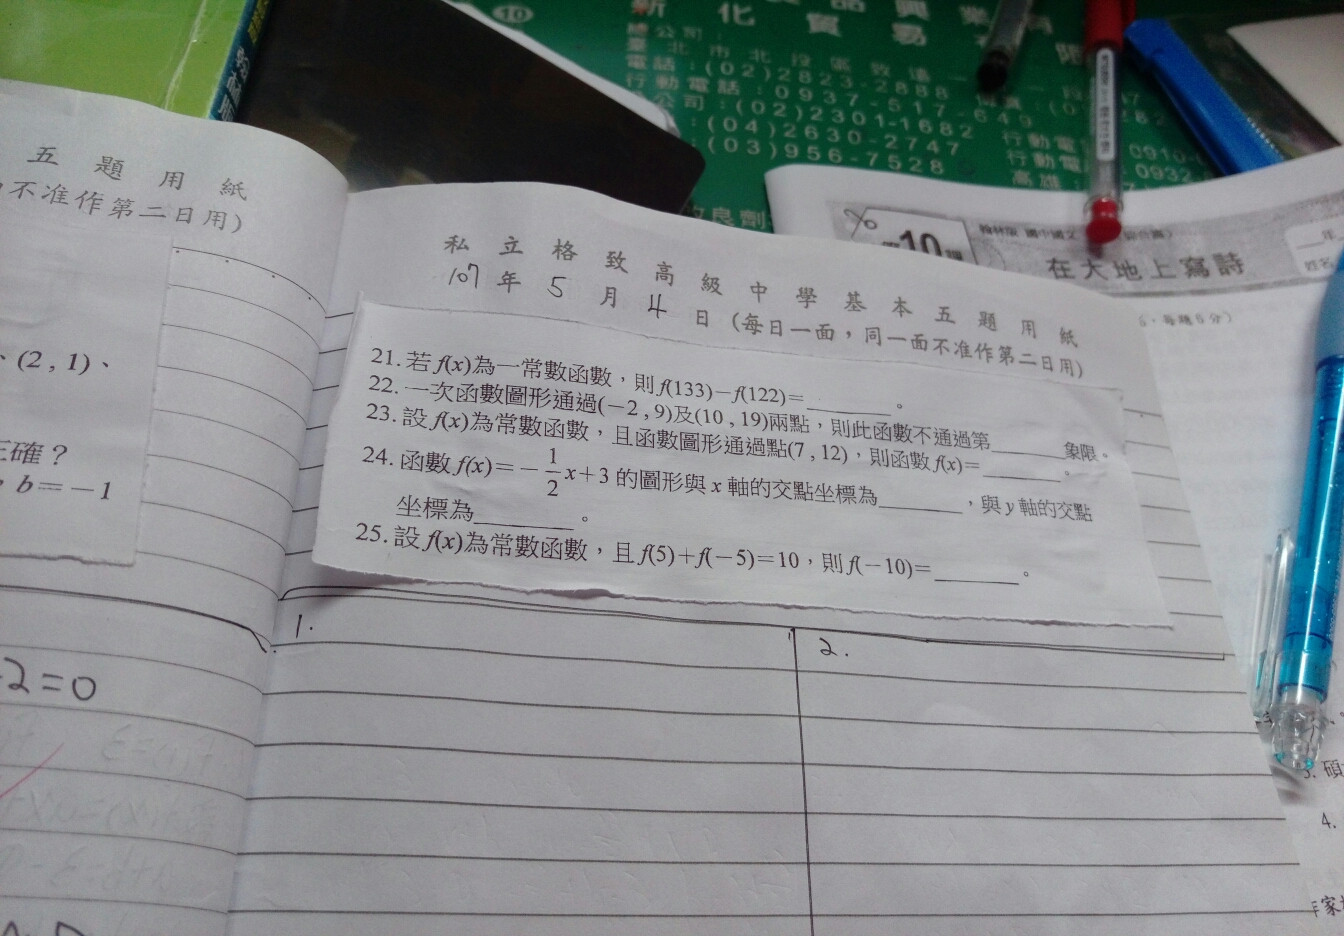 新化貿易
公司：
台北市北投區致遠一
電話：(02)2823-2888
行動電話：0937-517-649
公司：(02)2301-1682 行動電
：(04)2630-2747 行動電 0910-
：(03)956-7528 高雄： 0932-
五題用紙
不准作第二日用)
、(2 , 1)、
正確？
，b＝－1
-2=0
私立格致高級中學基本五題用紙
107年5月4日(每日一面，同一面不准作第二日用)
21. 若 f(x)為一常數函數，則 f(133)－f(122)＝________。
22. 一次函數圖形通過(－2 , 9)及(10 , 19)兩點，則此函數不通過第________象限。
23. 設 f(x)為常數函數，且函數圖形通過點(7 , 12)，則函數 f(x)＝________。
24. 函數 f(x)＝－1/2x＋3 的圖形與 x 軸的交點坐標為________，與 y 軸的交點
坐標為________。
25. 設 f(x)為常數函數，且 f(5)＋f(－5)＝10，則 f(－10)＝________。
1.
2.
10
在大地上寫詩
年
姓名
，每題6分)
3. 碩
4.